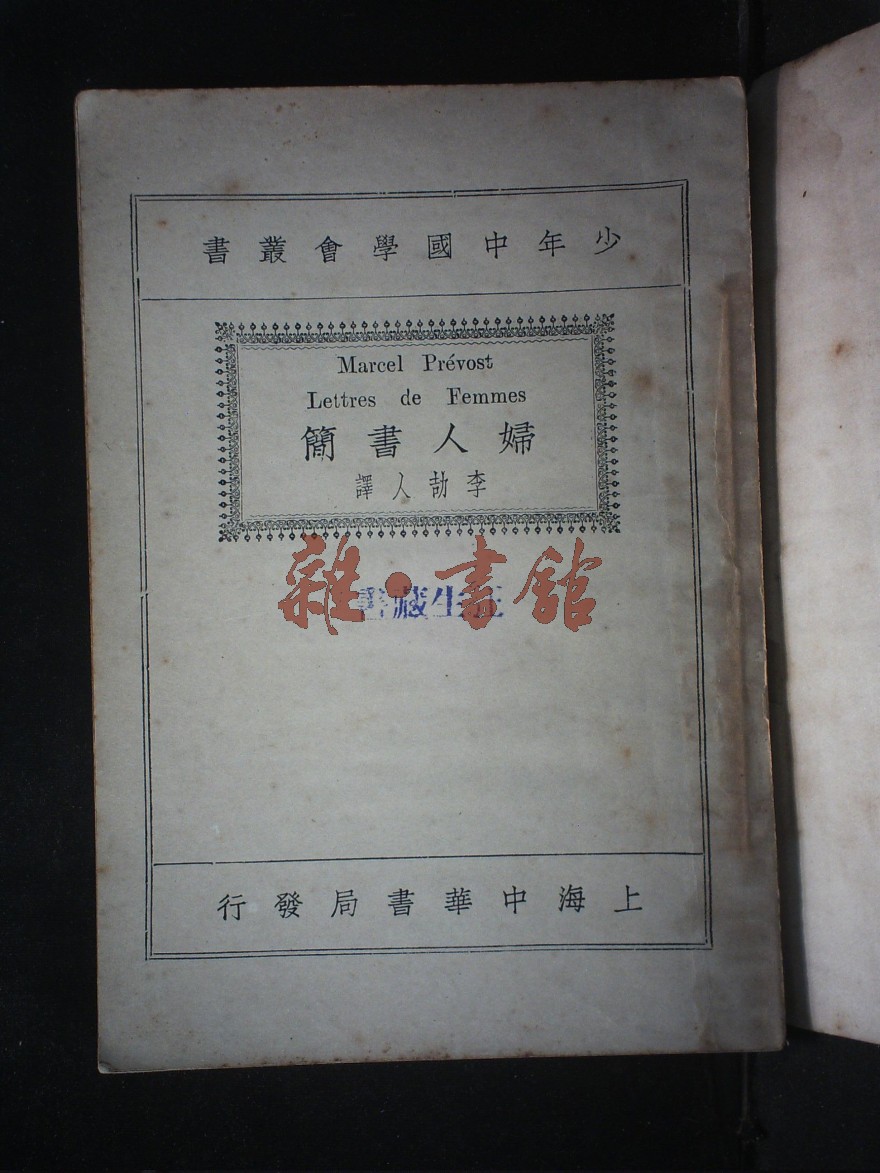 少年中國學會叢書
Marcel Prévost
Lettres de Femmes
婦人書簡
李劼人譯
雜·書舘
生藏書
上海中華書局發行